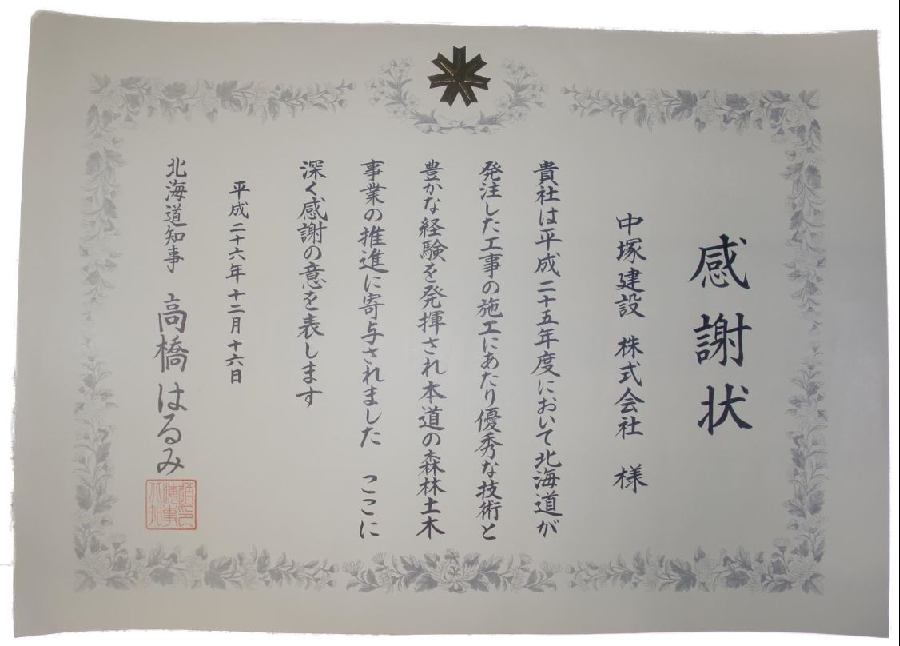 感謝状
中塚建設 株式会社 様
貴社は平成二十五年度において北海道が
発注した工事の施工にあたり優秀な技術と
豊かな経験を発揮され本道の森林土木
事業の推進に寄与されました ここに
深く感謝の意を表します
平成二十六年十二月十六日
北海道知事 高橋はるみ